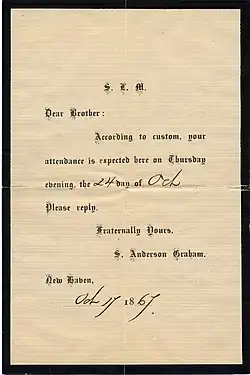 S. L. M.
Dear Brother:
According to custom, your
attendance is expected here on Thursday
evening, the 24 day of Oct
Please reply.
Fraternally Yours,
S. Anderson Graham.
New Haven,
Oct 17 1867.